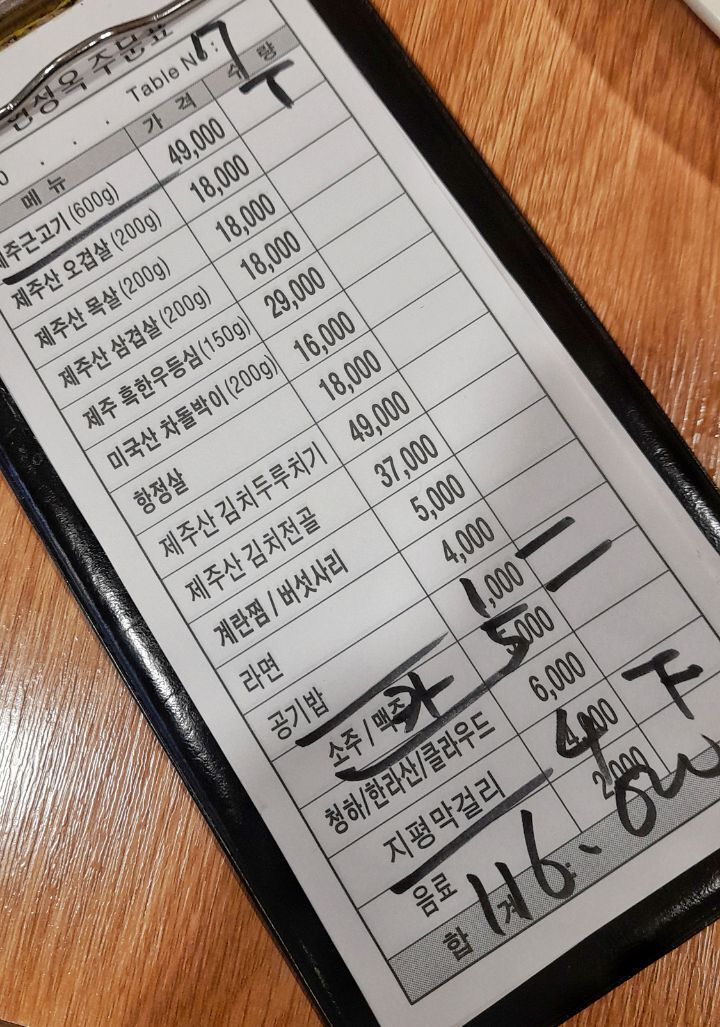 민성옥 주문표
Table No : 7
메 뉴 가 격 수 량
제주근고기 (600g) 49,000 丅
제주산 오겹살 (200g) 18,000
제주산 목살 (200g) 18,000
제주산 삼겹살 (200g) 18,000
제주 흑한우등심 (150g) 29,000
미국산 차돌박이 (200g) 16,000
항정살 18,000
제주산 김치두루치기 49,000
제주산 김치전골 37,000
계란찜 / 버섯사리 5,000
라면 4,000
공기밥 1,000 一
소주 / 맥주 5,000 一
청하/한라산/클라우드 6,000
지평막걸리 4,000 下
음료 2,000
합 계 116.000